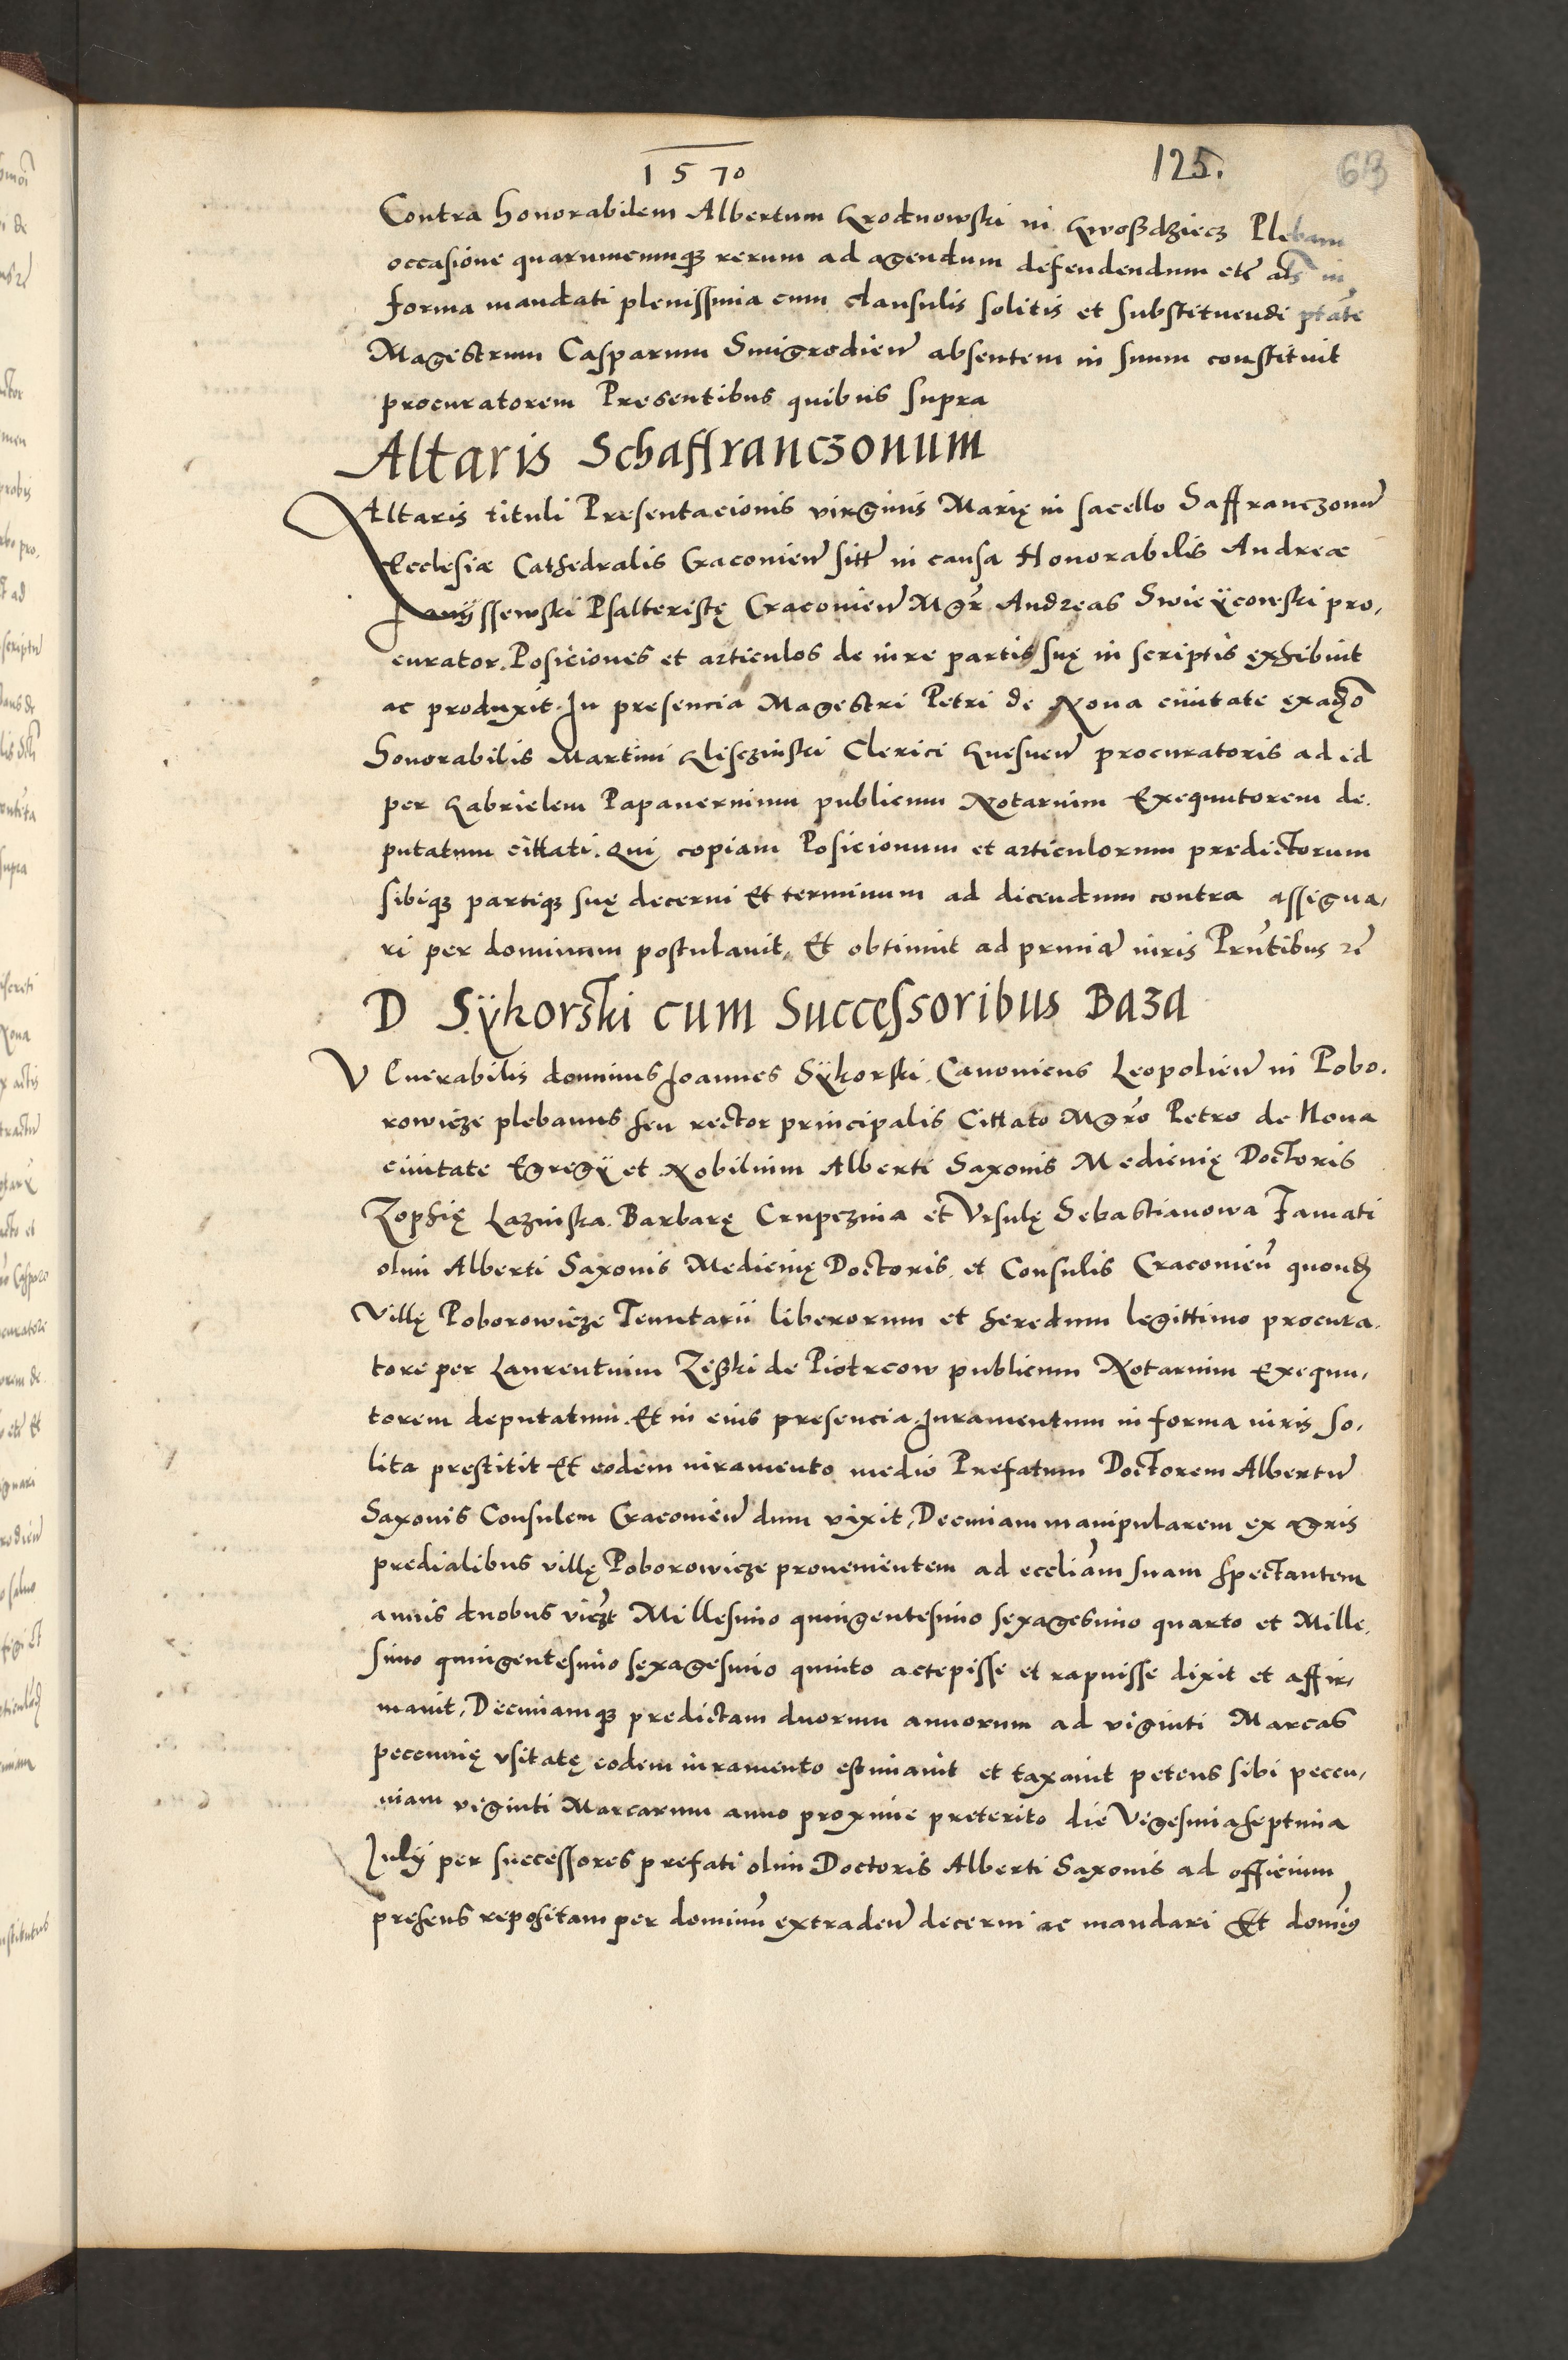 1570
125.
63
Contra honorabilem Albertum Grodnowski in Gwosdziecz Plebanu
occasione quarumcumqꝫ rerum ad agendum defendendum etc̃ als̃ in
forma mandati plenissima cum clausulis solitis et substituendi ptãte
Magistrum Casparum Smigrodień absentem in suum constituit
procuratorem Presentibus quibus supra
Altaris Schaffranczonum
Altaris tituli Presentacionis virginis Marię in sacello Saffranczonũ
Ecclesiæ Cathedralis Cracovień sitt̃ in causa Honorabilis Andreæ
Janÿssewski Psalteristę Cracovień Mgr̃ Andreas Swieÿcowski pro,
curator. Posiciones et articulos de iure partis suę in scriptis exhibuit
ac produxit. In presencia Magistri Petri de Nova civitate ex adꝫo
Honorabilis Martini Gliscziński Clerici Gnesneń procuratoris ad id
per Gabrielem Papaverinum publicum Notarium Exequutorem de.
putatum cittati. Qui copiam Posicionum et articulorum predictorum
sibiqꝫ partiqꝫ suę decerni Et terminum ad dicendum contra assigna,
ri per dominum postulavit, Et obtinuit ad primã iuris Prñtibus ꝛc̃
D Sÿkorski cum Successoribus Baza
VEnerabilis dominus Joannes Sÿkorski. Canonicus Leopolień in Pobo.
rowicze plebanus seu rector principalis Cittato Mgr̃o Petro de Nova
civitate Egregÿ et Nobilium Alberti Saxonis Medicinę Doctoris
Zophię Lazinska. Barbarę Crupczina et Ursulę Sebastianowa Famati
olim Alberti Saxonis Medicinę Doctoris. et Consulis Cracovień quond̃
Villę Poborowicze Tenutarii liberorum et heredum legittimo procura.
tore per Laurentium Ziski de Piotrcow publicum Notarium Exequu,
torem deputatum. Et in eius presencia Juramentum in forma iuris so,
lita prestitit Et eodem iuramento medio Prefatum Doctorem Albertũ
Saxonis Consulem Cracovień dum vixit, Decimam manipularem ex agris
predialibus villę Poborowicze provenientem ad eccliãm suam spectantem
annis duobus viczt Millesimo quingentesimo sexagesimo quarto et Mille.
simo quingentesimo sexagesimo quinto accepisse et rapuisse dixit et affir,
mavit, Decimamqꝫ predictam duorum annorum ad viginti Marcas
peccunię usitatę eodem iuramento estimavit et taxavit petens sibi peccu,
niam viginti Marcarum anno proxime preterito die Vigesimaseptima
Julÿ per successores prefati olim Doctoris Alberti Saxonis ad officium
presens repositam per dominũ extradeń decerni ac mandari Et domiñꝯ